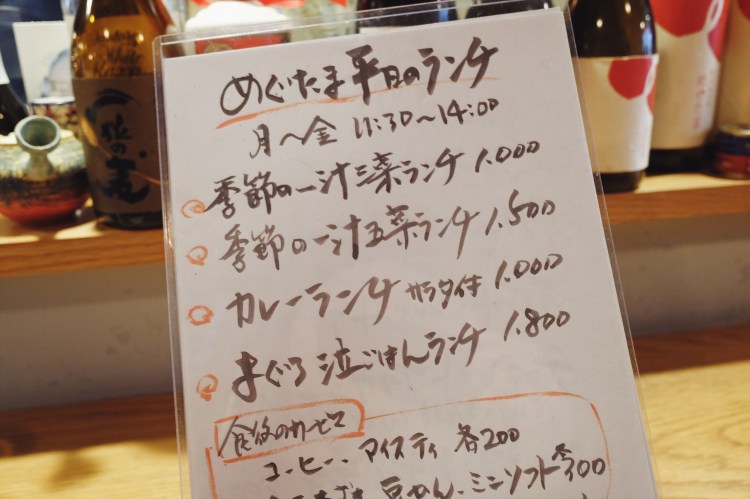 めぐたま平日のランチ
月〜金 11:30〜14:00
季節の一汁三菜ランチ 1.000
季節の一汁五菜ランチ 1.500
カレーランチ サラダ付 1.000
まぐろ 泣ごはんランチ 1.800
食後のサービス
コーヒー、アイスティ 各200
豆かん、ミニソフト各300